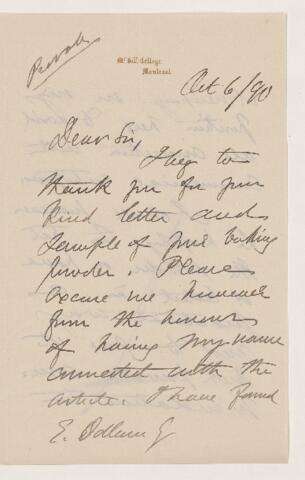 Private
McGill College,
Montreal.
Oct 6/90
Dear Sir, I beg to
thank you for your
kind letter and
sample of your baking
powder. Please
excuse me however
from the honour
of having my name
connected with the
article. I have found
E. Odlum